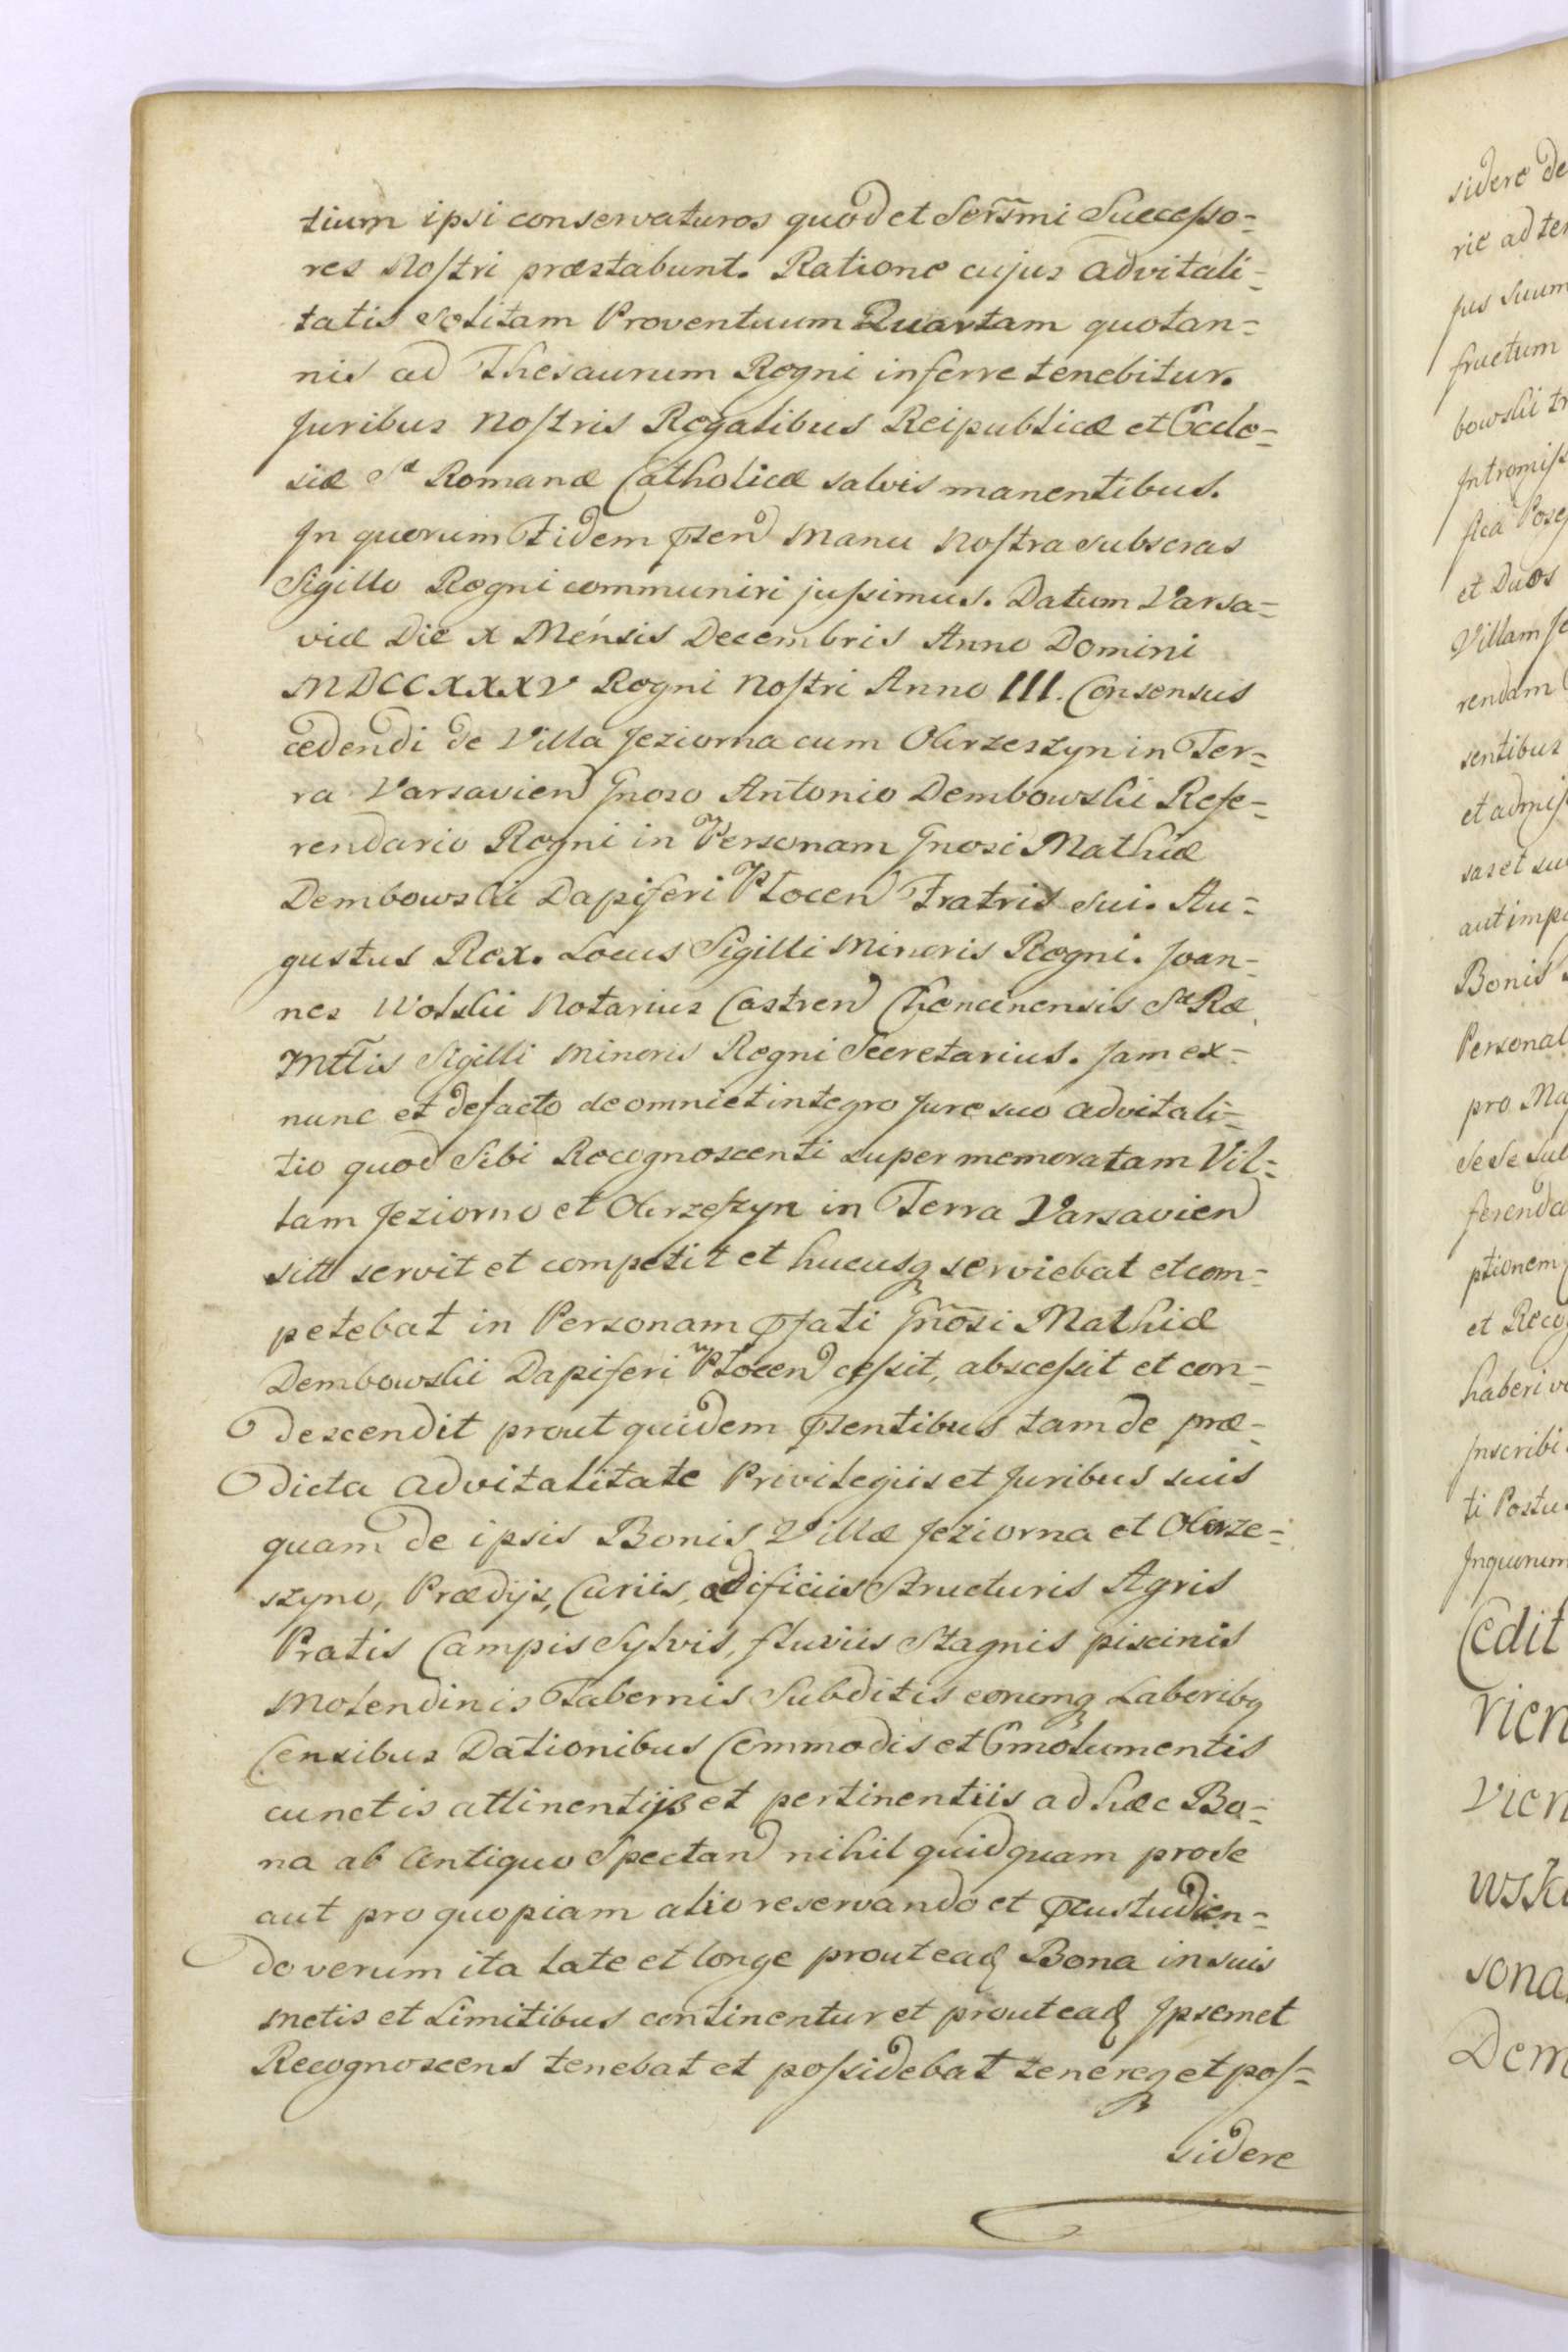 tium ipsi conservaturos quod et Serm̃i Successo=
res Nostri præstabunt. Ratione cujus advitali=
tatis Solitam Proventuum Quartam quotan=
nis ad Thesaurum Regni inferre tenebitur.
Juribus Nostris Regalibus Reipublicæ et Eccle=
siæ Sæ Romanæ Catholicæ salvis manentibus.
In quorum Fidem pñtend Manu Nostra subscras
Sigillo Regni communiri jussimus. Datum Varsa=
viæ Die X Mensis Decembris Anno Domini
MDCCXXXV Regni Nostri Anno III. Consensus
cedendi de Villa Jeziorna cum Obrzeszyn in Ter=
ra Varsavien Gnoso Antonio Dembowski Refe=
rendario Regni in Personam Gnosi Mathiæ
Dembowski Dapiferi Plocen Fratris sui. Au=
gustus Rex. Locus Sigilli Minoris Regni. Joan=
nes Wolski Notarius Castren Chencinensis Sæ Ræ
Mttis Sigilli Minoris Regni Secretarius. Jam ex=
nunc et defacto de omni et integro Jure suo advitali=
tio quod Sibi Recognoscenti super memoratam Vil=
lam Jeziorno et Obrzeszyn in Terra Varsavien
sitt servit et competit et hucusq serviebat et com=
petebat in Personam pfati Gnosi Mathiæ
Dembowski Dapiferi Plocen cessit, abscessit et con=
descendit prout quidem psentibus tam de præ=
dicta advitalitate Privilegiis et Juribus suis
quam de ipsis Bonis Villæ Jeziorna et Obrze=
szyno, Prædijs, Curiis, ædificiis Structuris Agris
Pratis Campis Sylvis, fluviis Stagnis piscinis
Molendinis Tabernis Subditis eorumq Laboribq
Censibus Dationibus Commodis et Emolumentis
cunctis attinentijs et pertinentiis ad hæc Bo=
na ab Antiquo Spectan nihil quidquam pro se
aut pro quopiam alio reservando et pcustudien=
do verum ita late et longe prout eaq Bona in suis
metis et Limitibus continentur et prout eaq Ipsemet
Recognoscens tenebat et possidebat tenereq et pos=
sidere
sidere de
rie ad te
jus suum
fructum
bowski tr
Intromiss
fica Pose
et Duos
Villam Je
rendam
sentibus
et admis
sas et su
aut imp
Bonis
Personal
pro Ma
sese sub
ferenda
ptionem
et Reco
haberi vo
Inscribi
ti Postu
Inquorum
Cedit
rien
vien
wski
sona
Dem